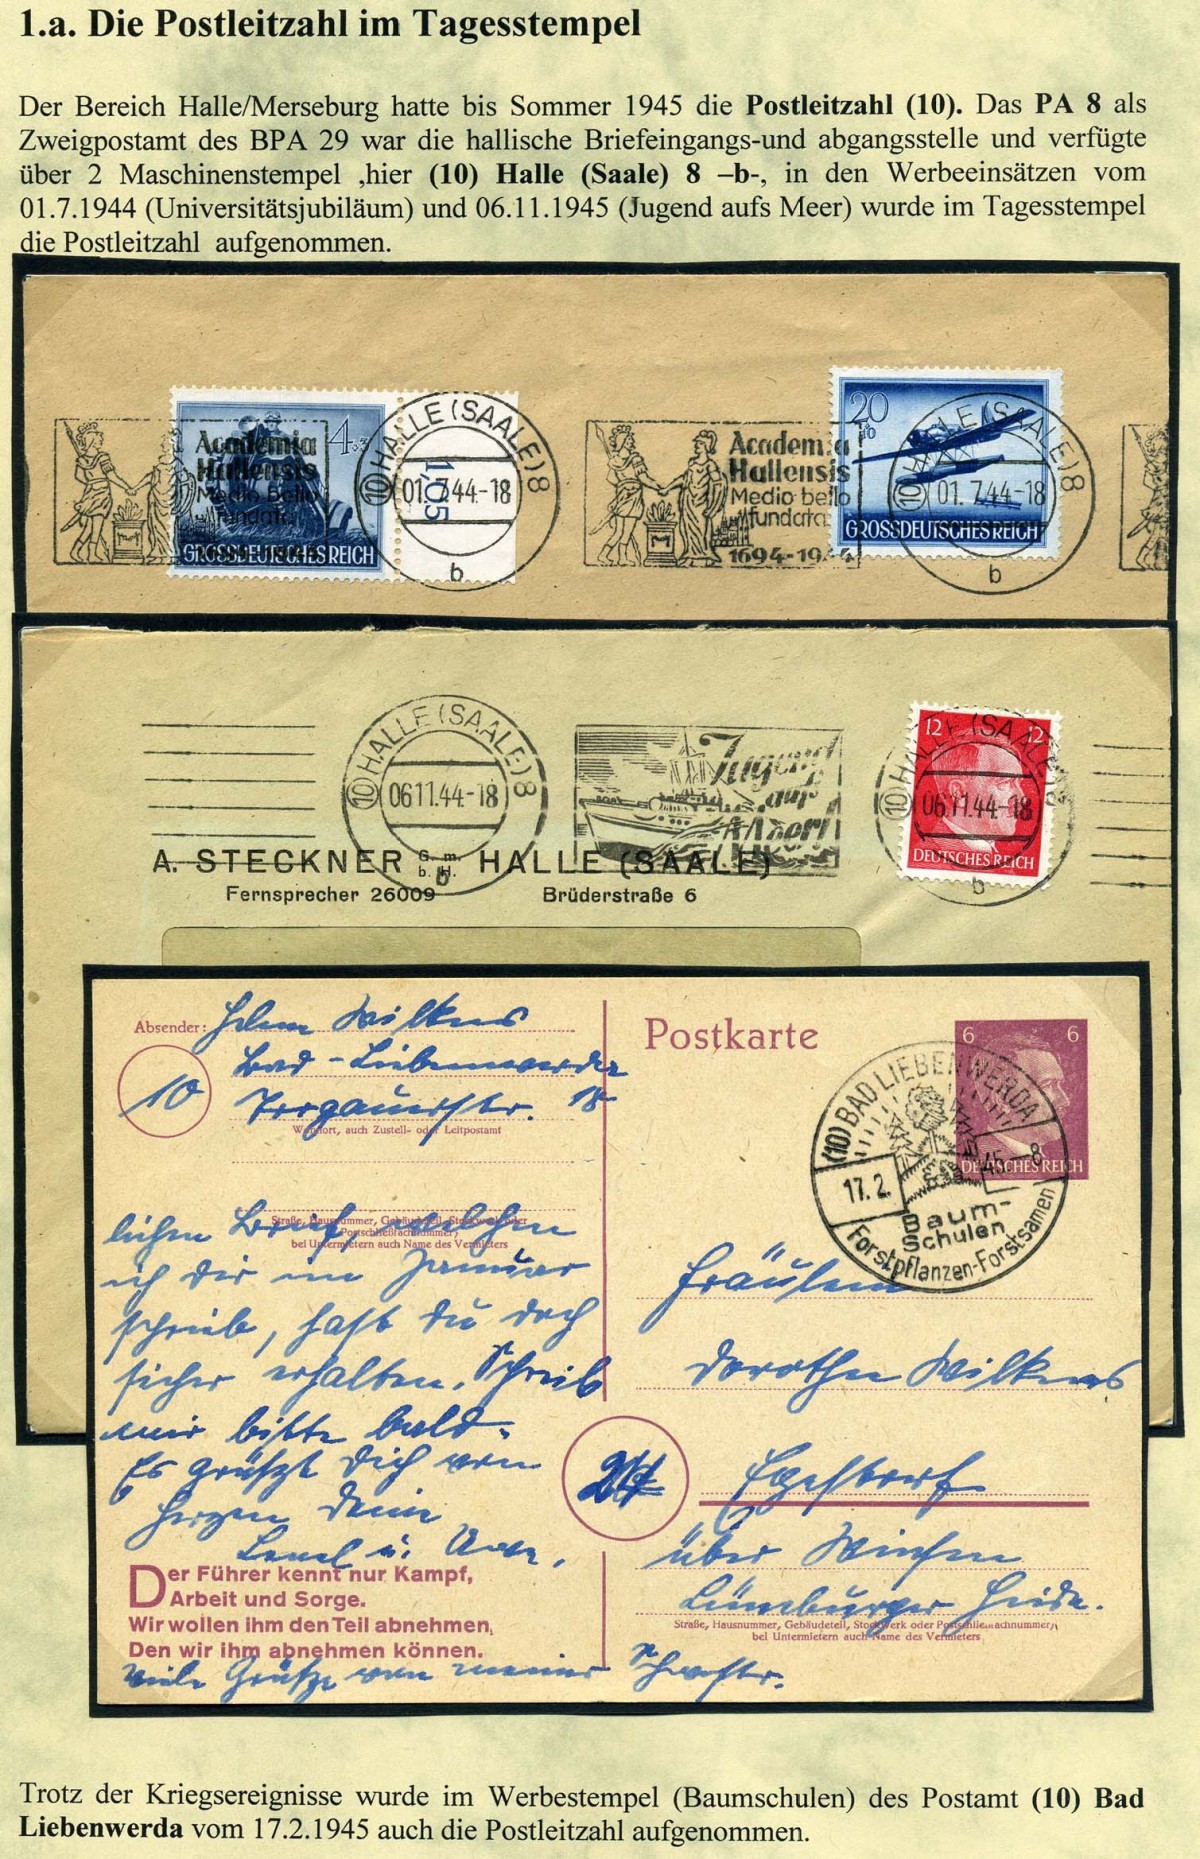 1.a. Die Postleitzahl im Tagesstempel
Der Bereich Halle/Merseburg hatte bis Sommer 1945 die Postleitzahl (10). Das PA 8 als
Zweigpostamt des BPA 29 war die hallische Briefeingangs-und abgangsstelle und verfügte
über 2 Maschinenstempel ,hier (10) Halle (Saale) 8 –b-, in den Werbeeinsätzen vom
01.7.1944 (Universitätsjubiläum) und 06.11.1945 (Jugend aufs Meer) wurde im Tagesstempel
die Postleitzahl aufgenommen.
4+3
GROSSDEUTSCHES REICH
Academia
Hallensis
Medio Bello
fundata
1,05
10 HALLE (SAALE) 8
01.7.44-18
b
Academia
Hallensis
Medio bello
fundata
1694-1944
20
GROSSDEUTSCHES REICH
10 HALLE (SAALE) 8
01.7.44-18
b
10 HALLE (SAALE) 8
06.11.44-18
b
Jugend
aufs
Meer!
12 12
DEUTSCHES REICH
10 HALLE (SAALE) 8
06.11.44-18
b
A. STECKNER G. m. b. H. HALLE (SAALE)
Fernsprecher 26009 Brüderstraße 6
Absender: Wilkens
Bad-Liebenwerda
10
Torgauerstr. 18
Wohnort, auch Zustell- oder Leitpostamt
Straße, Hausnummer, Gebäudeteil, Stockwerk oder
Postschließfachnummer;
bei Untermietern auch Name des Vermieters
lieben Brief, welchen
ich Dir im Januar
schrieb, hast du doch
sicher erhalten. Schreib
mir bitte bald.
Es grüßt Dich von
Herzen Deine
u.
Der Führer kennt nur Kampf,
Arbeit und Sorge.
Wir wollen ihm den Teil abnehmen,
Den wir ihm abnehmen können.
viele Grüße von meiner Schwester.
Postkarte
6 6
DEUTSCHES REICH
(10) BAD LIEBENWERDA
17.2.45-8
Baum-
Schulen
Forstpflanzen-Forstsamen
Fräulein
Dorothea Wilkens
24
Egestorf
über Winsen
Lüneburger Heide.
Straße, Hausnummer, Gebäudeteil, Stockwerk oder Postschließfachnummer;
bei Untermietern auch Name des Vermieters
Trotz der Kriegsereignisse wurde im Werbestempel (Baumschulen) des Postamt (10) Bad
Liebenwerda vom 17.2.1945 auch die Postleitzahl aufgenommen.